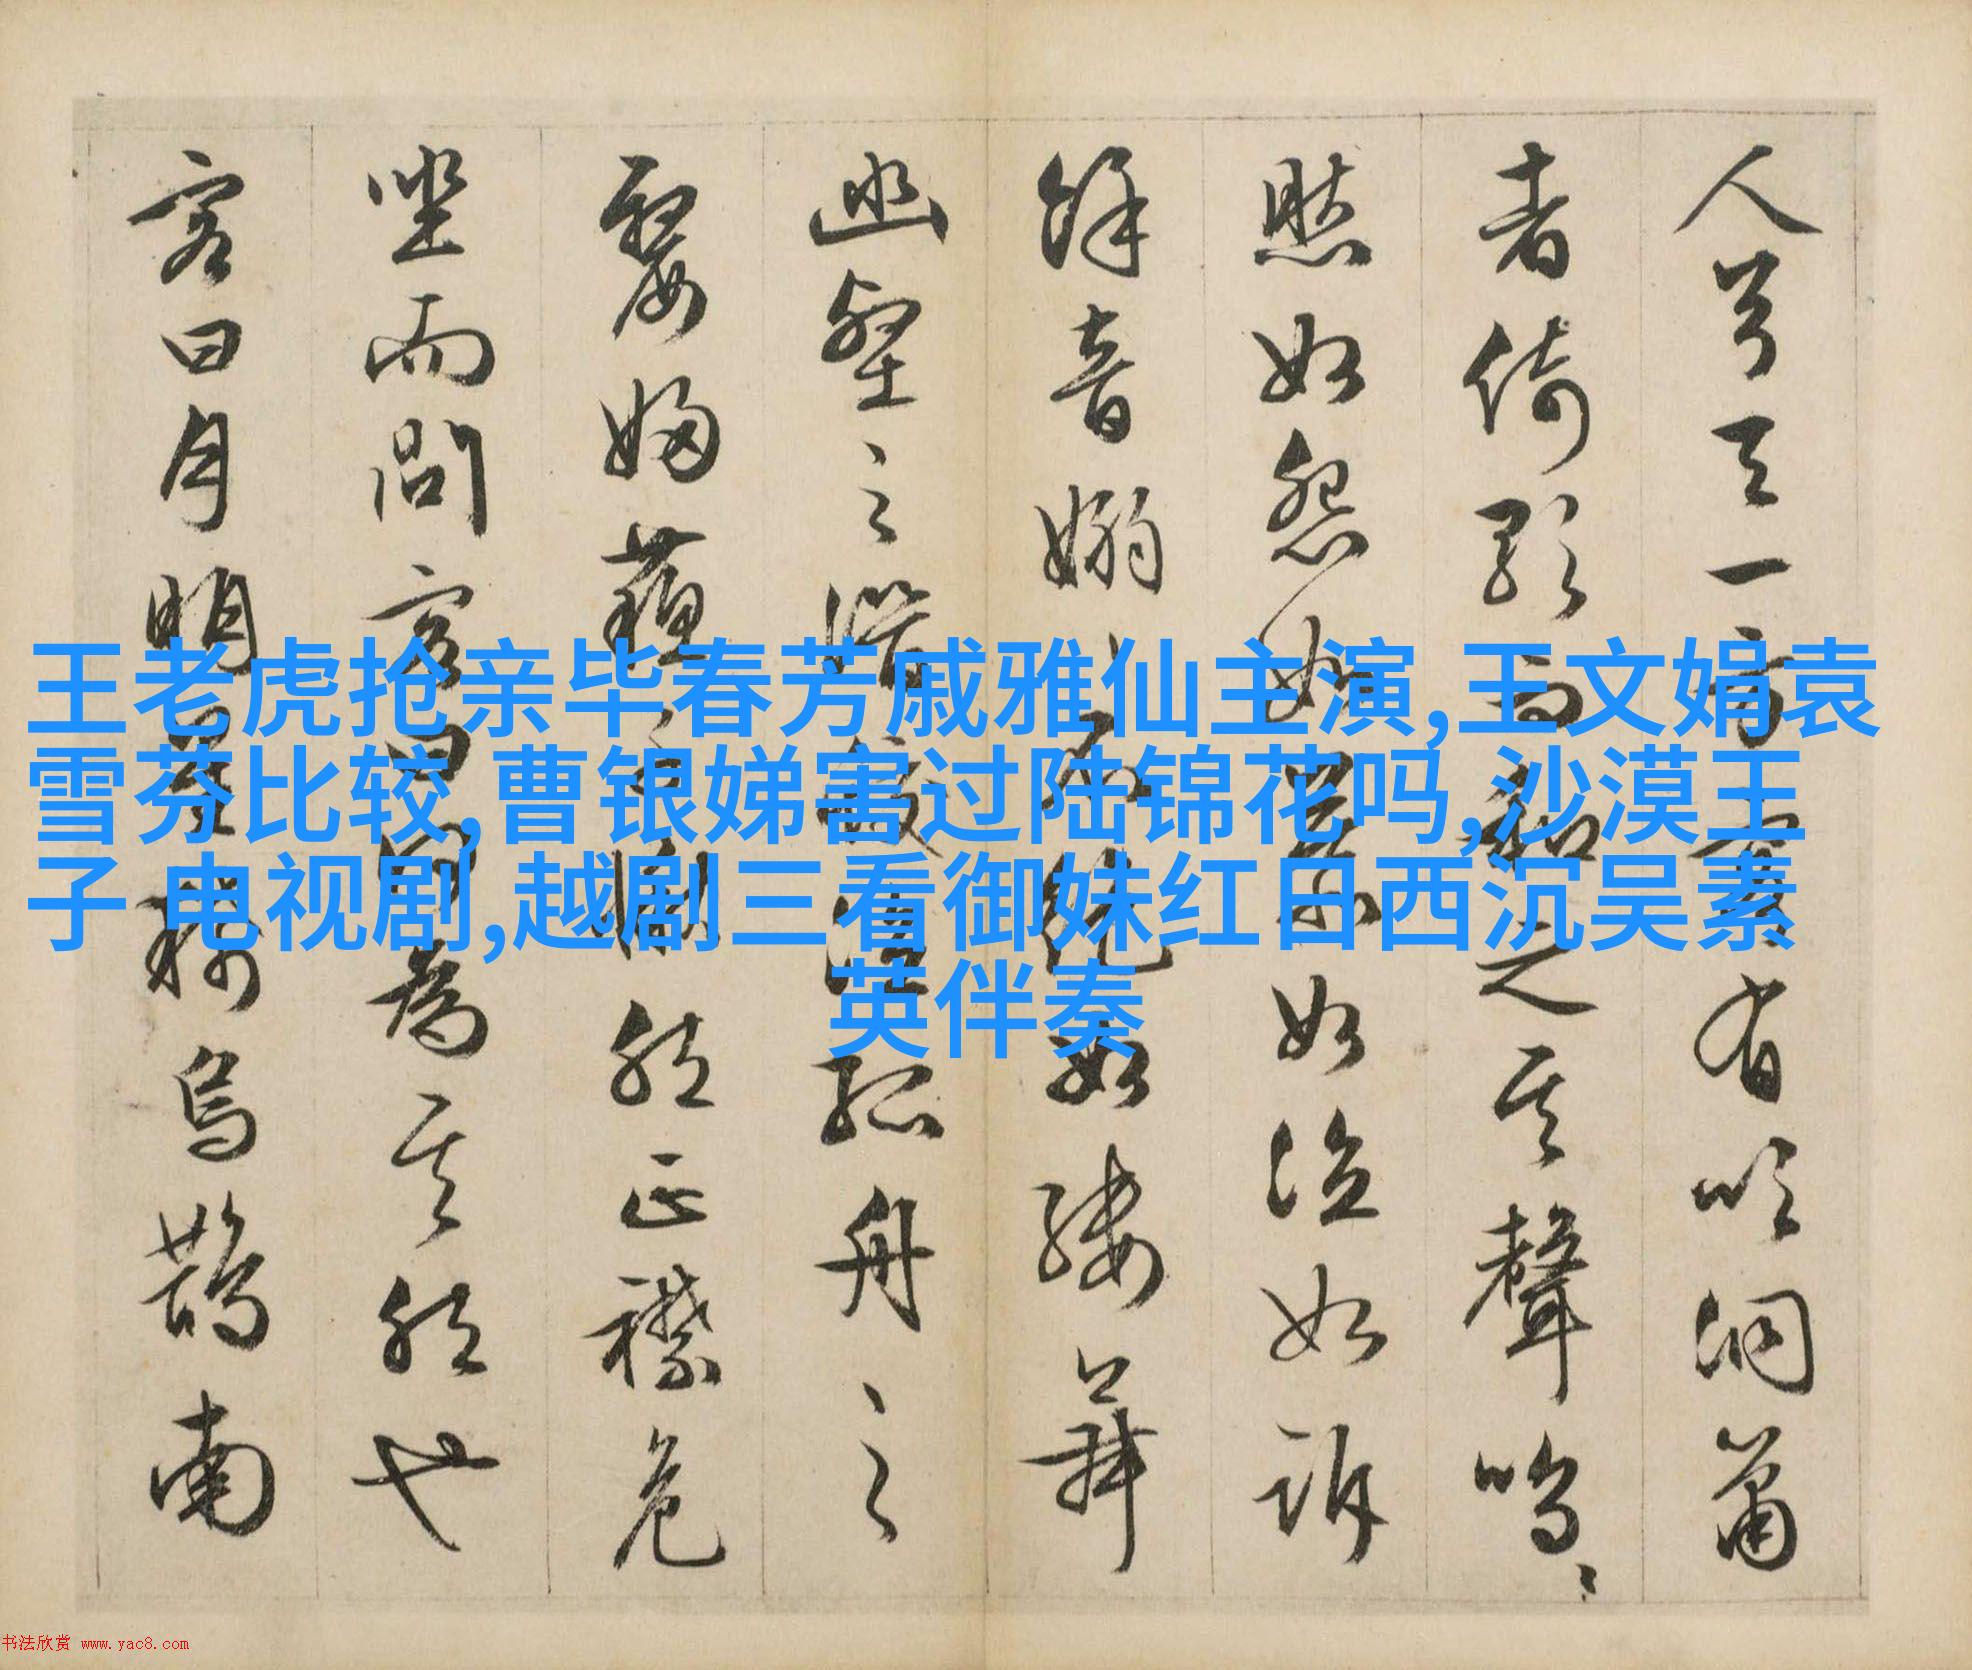 人兮天一方客有吹洞簫
者倚歌而和之其聲嗚、
然如怨如慕如泣如訴
餘音嫋、不絕如縷舞
幽壑之潛蛟泣孤舟之
嫠婦蘇子愀然正襟危
坐而問客曰何為其然也
客曰月明星稀烏鵲南
王老虎抢亲毕春芳戚雅仙主演,王文娟袁
雪芬比较,曹银娣害过陆锦花吗,沙漠王
子 电视剧,越剧三看御妹红日西沉吴素
英伴奏
书法欣赏 www.yac8.com